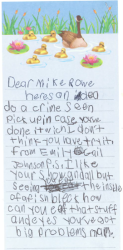 Dear Mike Rowe
heres an idea
do a crime seen
pick up in case your
done it wich I don't
think you have try it
from Emily
Johnson P.S. I like
your show and all but
seeing the inside
of a fish bleck how
can you eat that stuff
and eyes you've got
big problems man.